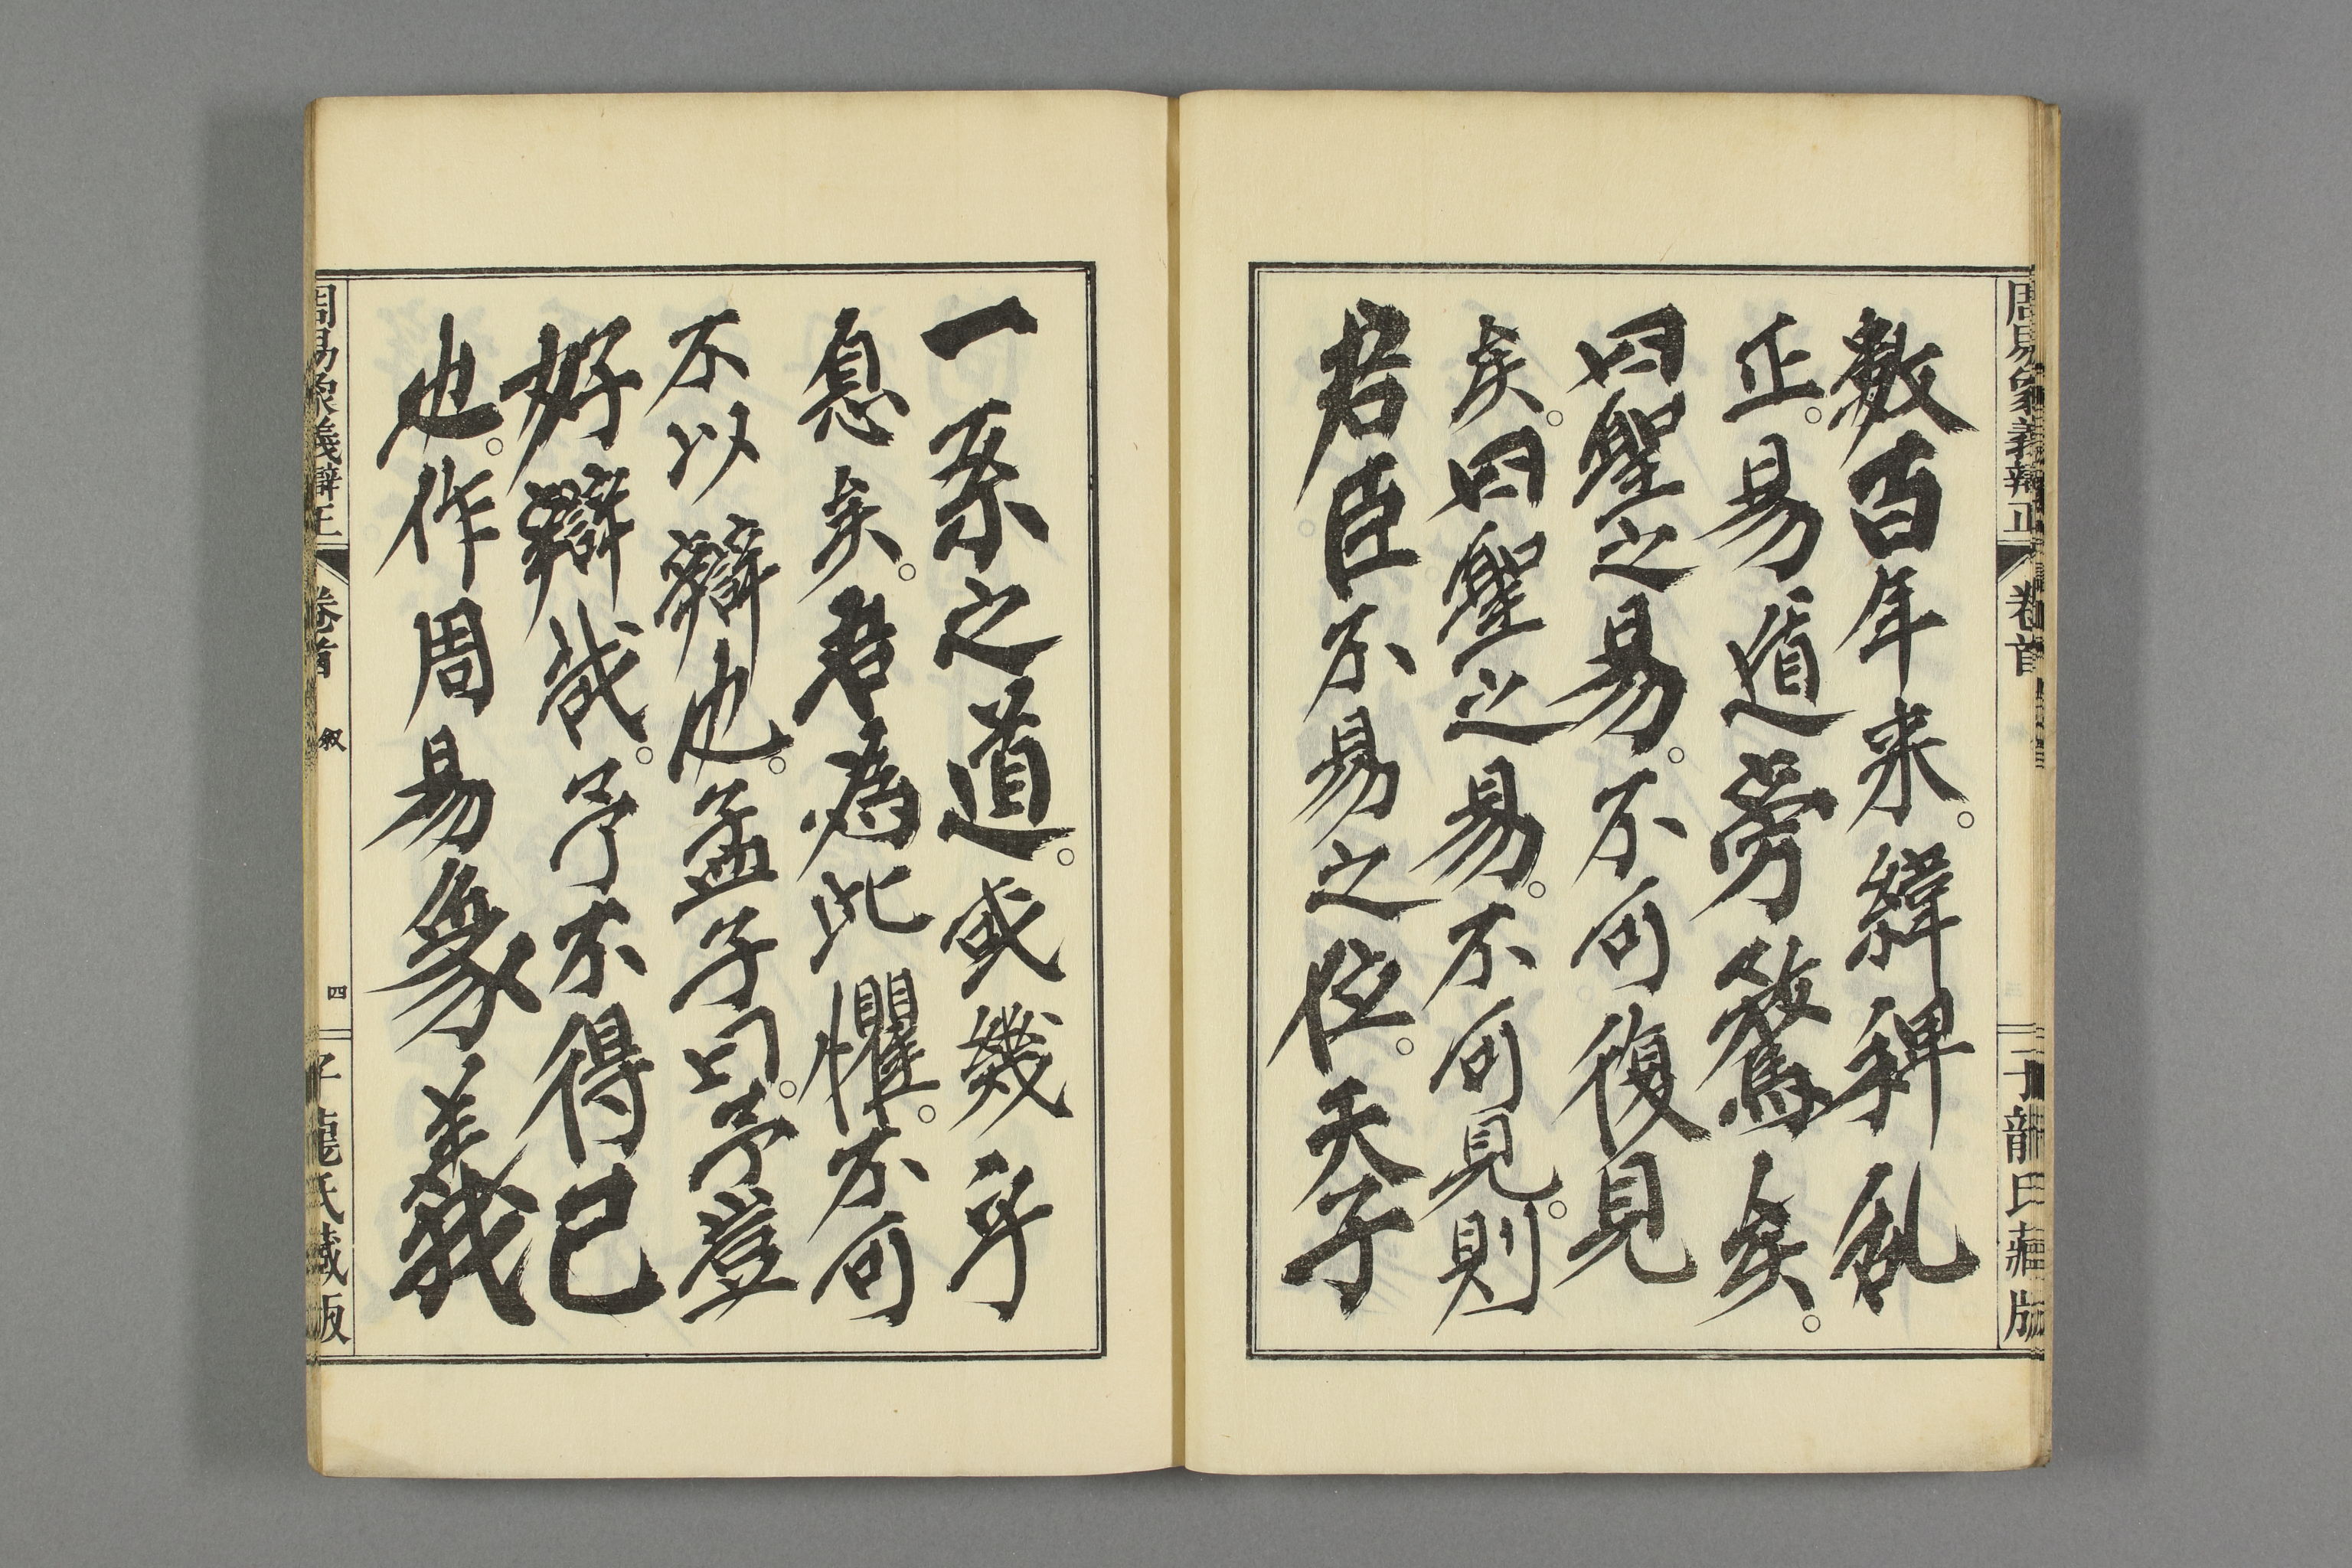 周易象義辯正 卷首
子龍氏藏版
數百年来。緯稗乱
正。易道旁鶩矣。
四聖之易。不可復見
矣。四聖之易。不可見。則
君臣不易之位。天子
一系之道。或幾乎
息矣。君為此懼。不可
不以辯也。孟子曰。予豈
好辯哉。予不得已
也。作周易象義
周易象義辯正 卷首 叙 四
子龍氏藏版